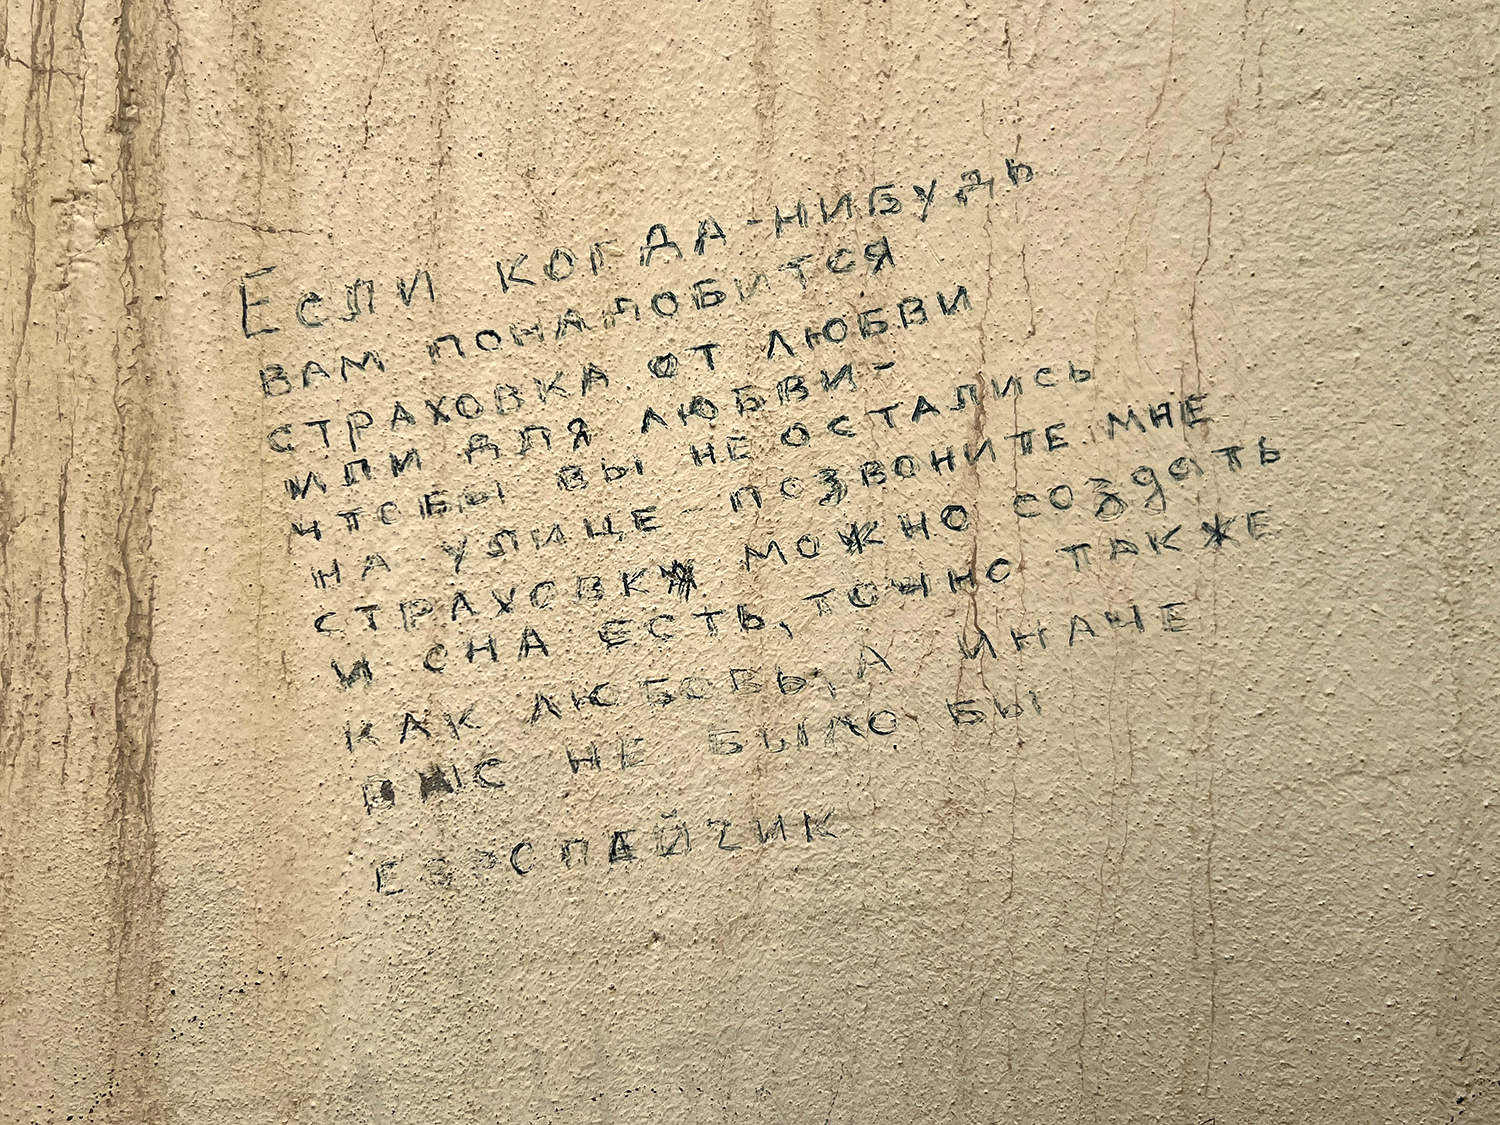 Если когда-нибудь
вам понадобится
страховка от любви
или для любви-
чтобы вы не остались
на улице - позвоните мне
страховки можно создать
и она есть, точно также
как любовь, а иначе
не было бы